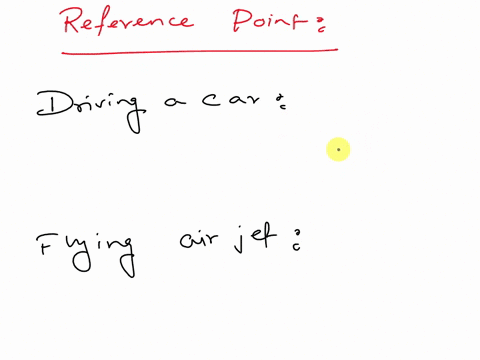 Reference Point:
Driving a car:
Flying air jet: